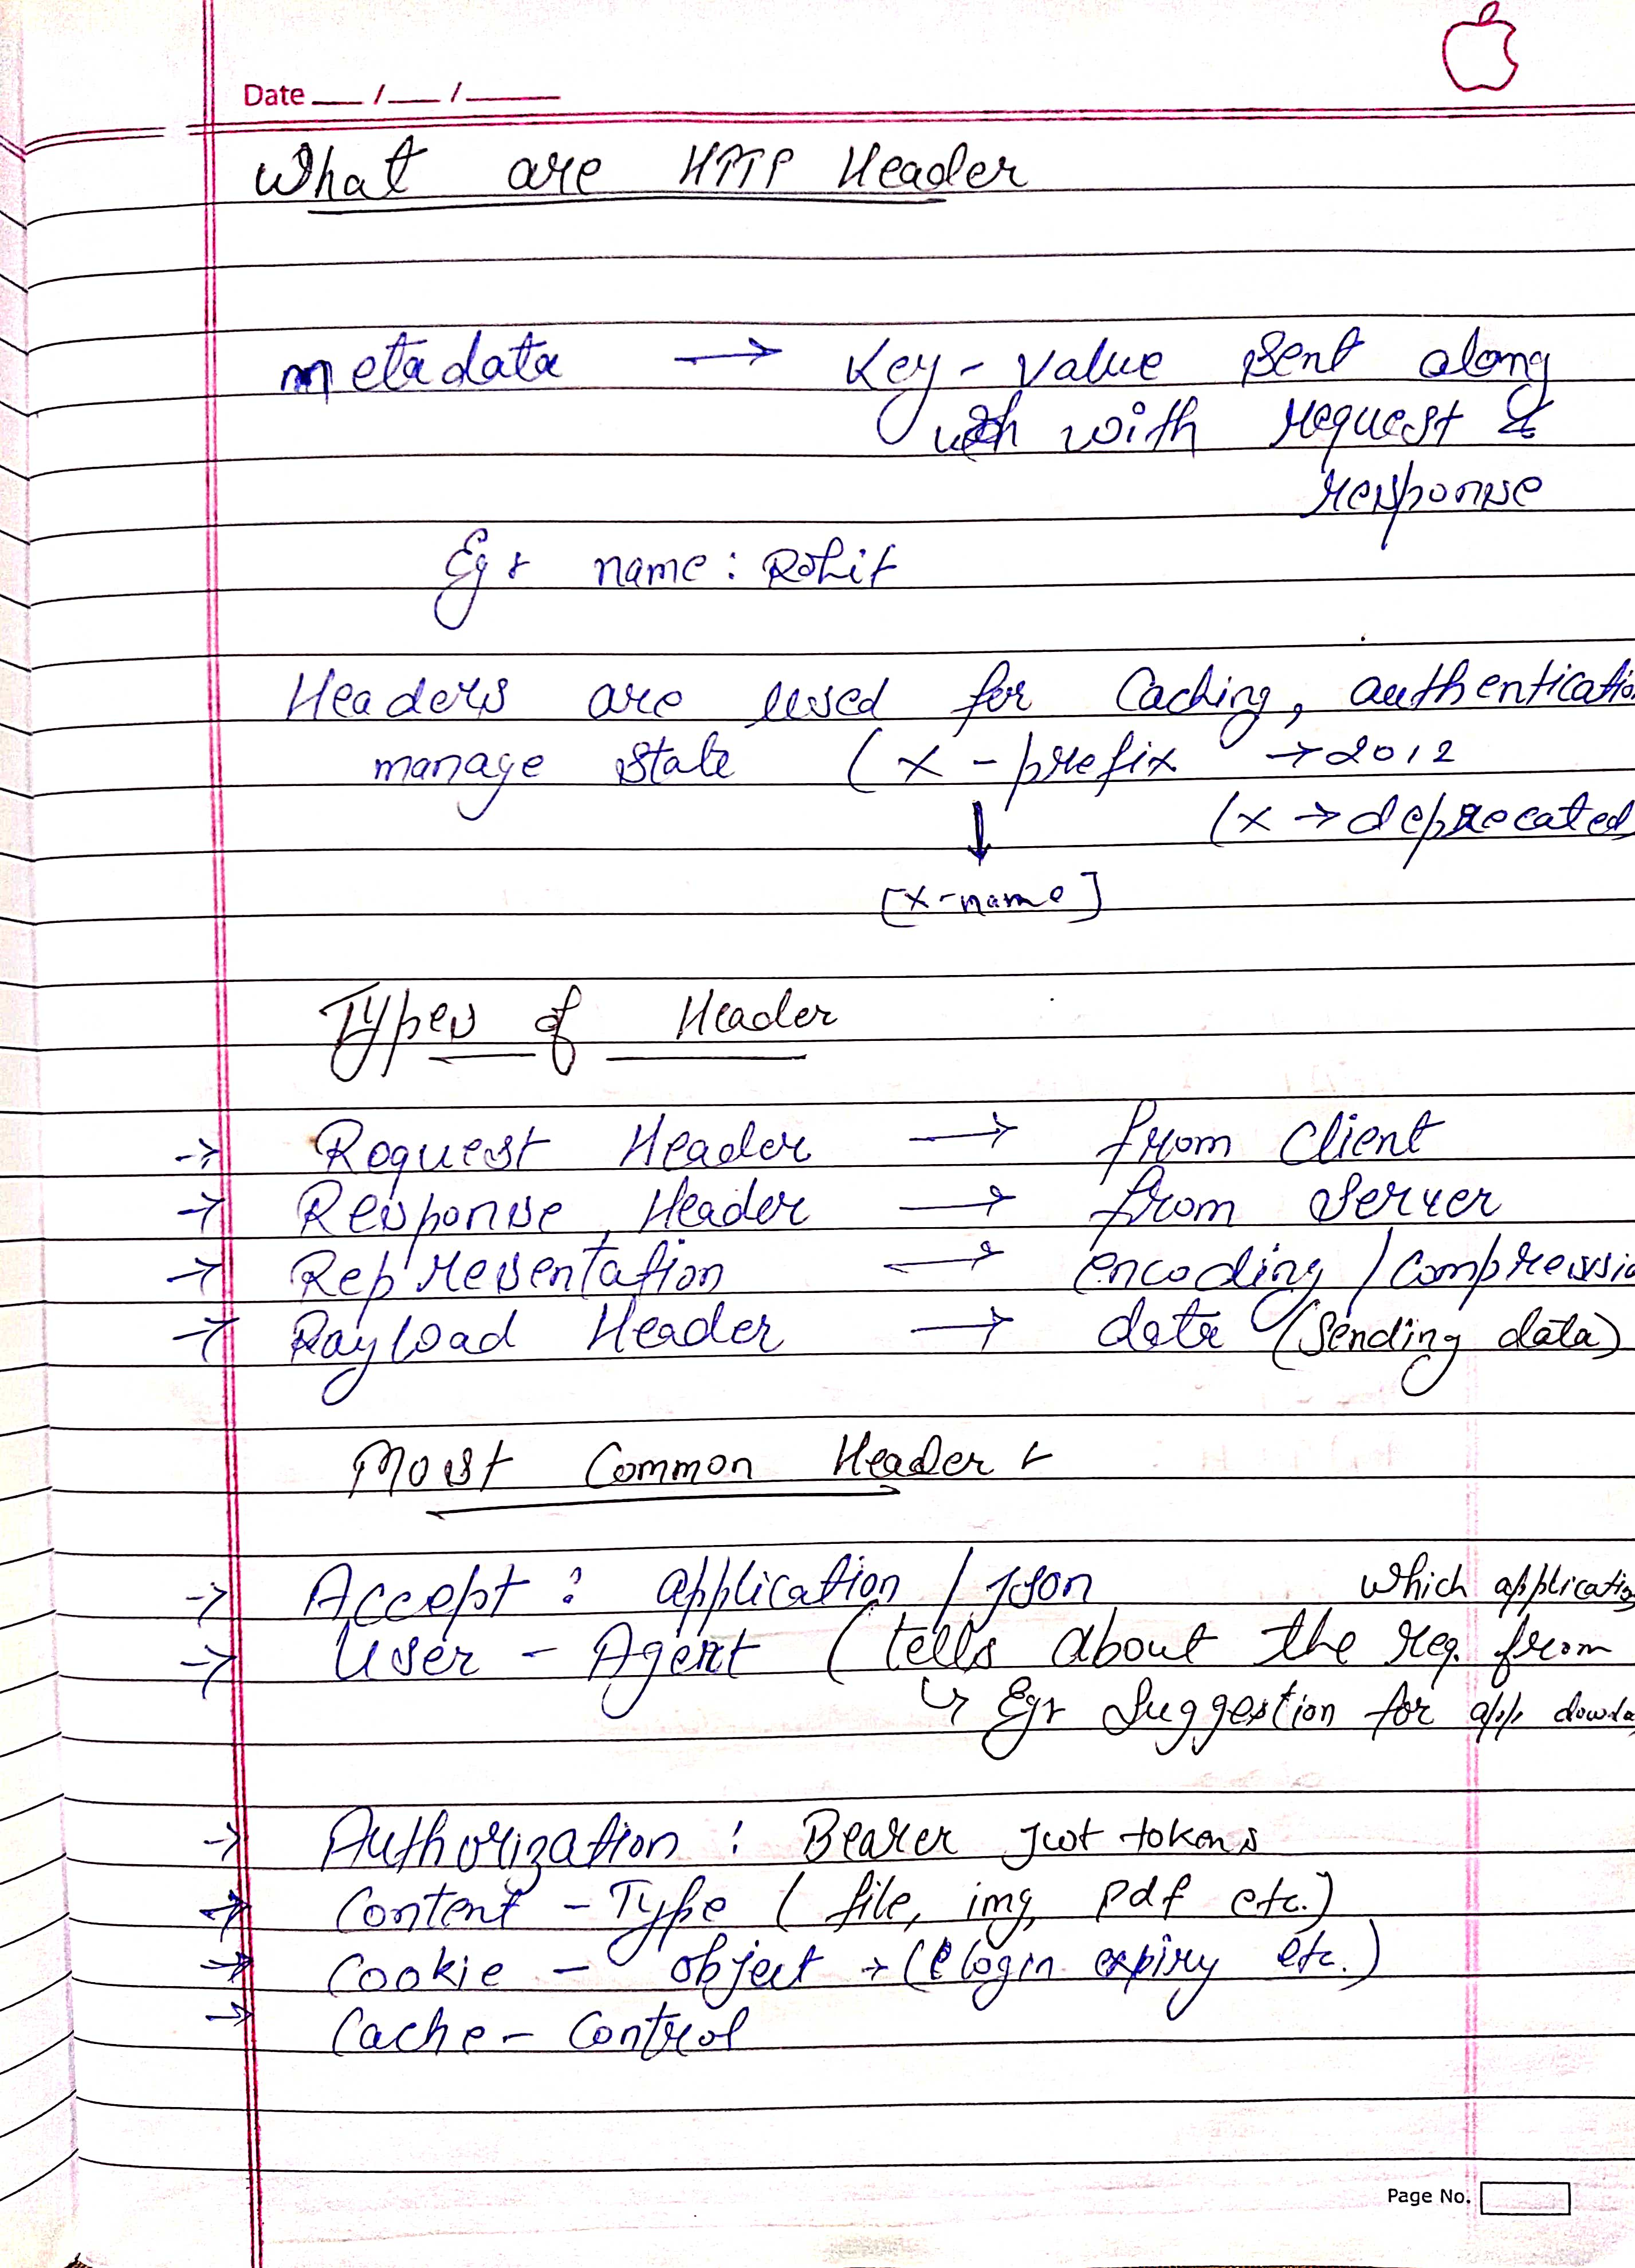 Date __ / __ / ____
What are HTTP Header
metadata → Key - value sent along
with with request &
response
Eg: name : Rohit
Headers are used for Caching, authenticatio
manage state ( X - prefix → 2012
( X → deprecated
[X-name]
Types of Header
→ Request Header → from Client
→ Response Header → from server
→ Representation → encoding / Compressio
→ Payload Header → data (Sending data)
Most Common Header :
→ Accept : application / json
which applicatio
→ User - Agent ( tells about the req. from
↳ Eg: Suggestion for app
→ Authorization : Bearer jwt tokens
→ Content - Type ( file, img, pdf etc.)
→ Cookie - object → ( login expiry etc.)
→ Cache - Control
Page No.